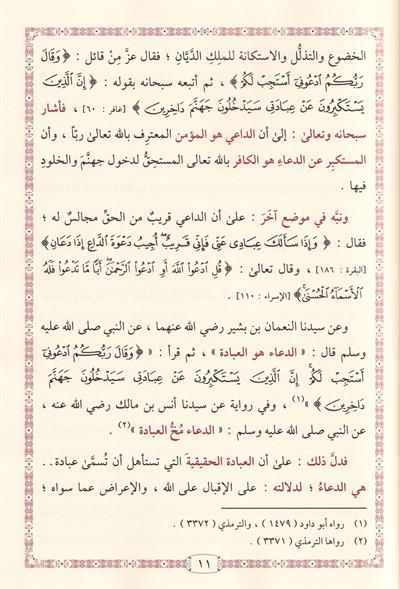 الخضوع والتذلُّل والاستكانة للملِكِ الدَّيَّانِ ؛ فقال عزَّ مِنْ قائل : ﴿ وَقَالَ
رَبُّكُمُ ٱدْعُونِيٓ أَسْتَجِبْ لَكُمْ ﴾ ، ثم أتبعه سبحانه بقوله : ﴿ إِنَّ ٱلَّذِينَ
يَسْتَكْبِرُونَ عَنْ عِبَادَتِي سَيَدْخُلُونَ جَهَنَّمَ دَاخِرِينَ ﴾ [غافر : ٦٠] ، فأشار
سبحانه وتعالىٰ : إلىٰ أن الداعي هو المؤمن المعترِف بالله تعالىٰ ربّاً ، وأن
المستكبِر عن الدعاءِ هو الكافر بالله تعالى المستحِقُّ لدخول جهنَّمَ والخلودِ
فيها .
ونبَّه في موضع آخَرَ : علىٰ أن الداعي قريبٌ من الحقِّ مجالسٌ له ؛
فقال : ﴿ وَإِذَا سَأَلَكَ عِبَادِى عَنِّى فَإِنِّى قَرِيبٌ أُجِيبُ دَعْوَةَ ٱلدَّاعِ إِذَا دَعَانِ ﴾
[البقرة : ١٨٦] ، وقال تعالىٰ : ﴿ قُلِ ٱدْعُوا۟ ٱللَّهَ أَوِ ٱدْعُوا۟ ٱلرَّحْمَٰنَ أَيًّا مَّا تَدْعُوا۟ فَلَهُ
ٱلْأَسْمَآءُ ٱلْحُسْنَىٰ ﴾ [الإسراء : ١١٠] .
وعن سيدنا النعمان بن بشير رضي الله عنهما ، عن النبي صلى الله عليه
وسلم قال : « الدعاء هو العبادة » ، ثم قرأ : « ﴿ وَقَالَ رَبُّكُمُ ٱدْعُونِيٓ
أَسْتَجِبْ لَكُمْ إِنَّ ٱلَّذِينَ يَسْتَكْبِرُونَ عَنْ عِبَادَتِي سَيَدْخُلُونَ جَهَنَّمَ
دَاخِرِينَ ﴾ »(١) ، وفي رواية عن سيدنا أنس بن مالك رضي الله عنه ،
عن النبي صلى الله عليه وسلم : « الدعاء مُخُّ العبادة »(٢) .
فدلَّ ذلك : علىٰ أن العبادة الحقيقية التي تستأهل أن تُسمَّىٰ عبادة . .
هي الدعاءُ ؛ لدلالته : على الإقبال على الله ، والإعراض عما سواه ؛
(١) رواه أبو داود ( ١٤٧٩ ) ، والترمذي ( ٣٣٧٢ ) .
(٢) رواها الترمذي ( ٣٣٧١ ) .
١١